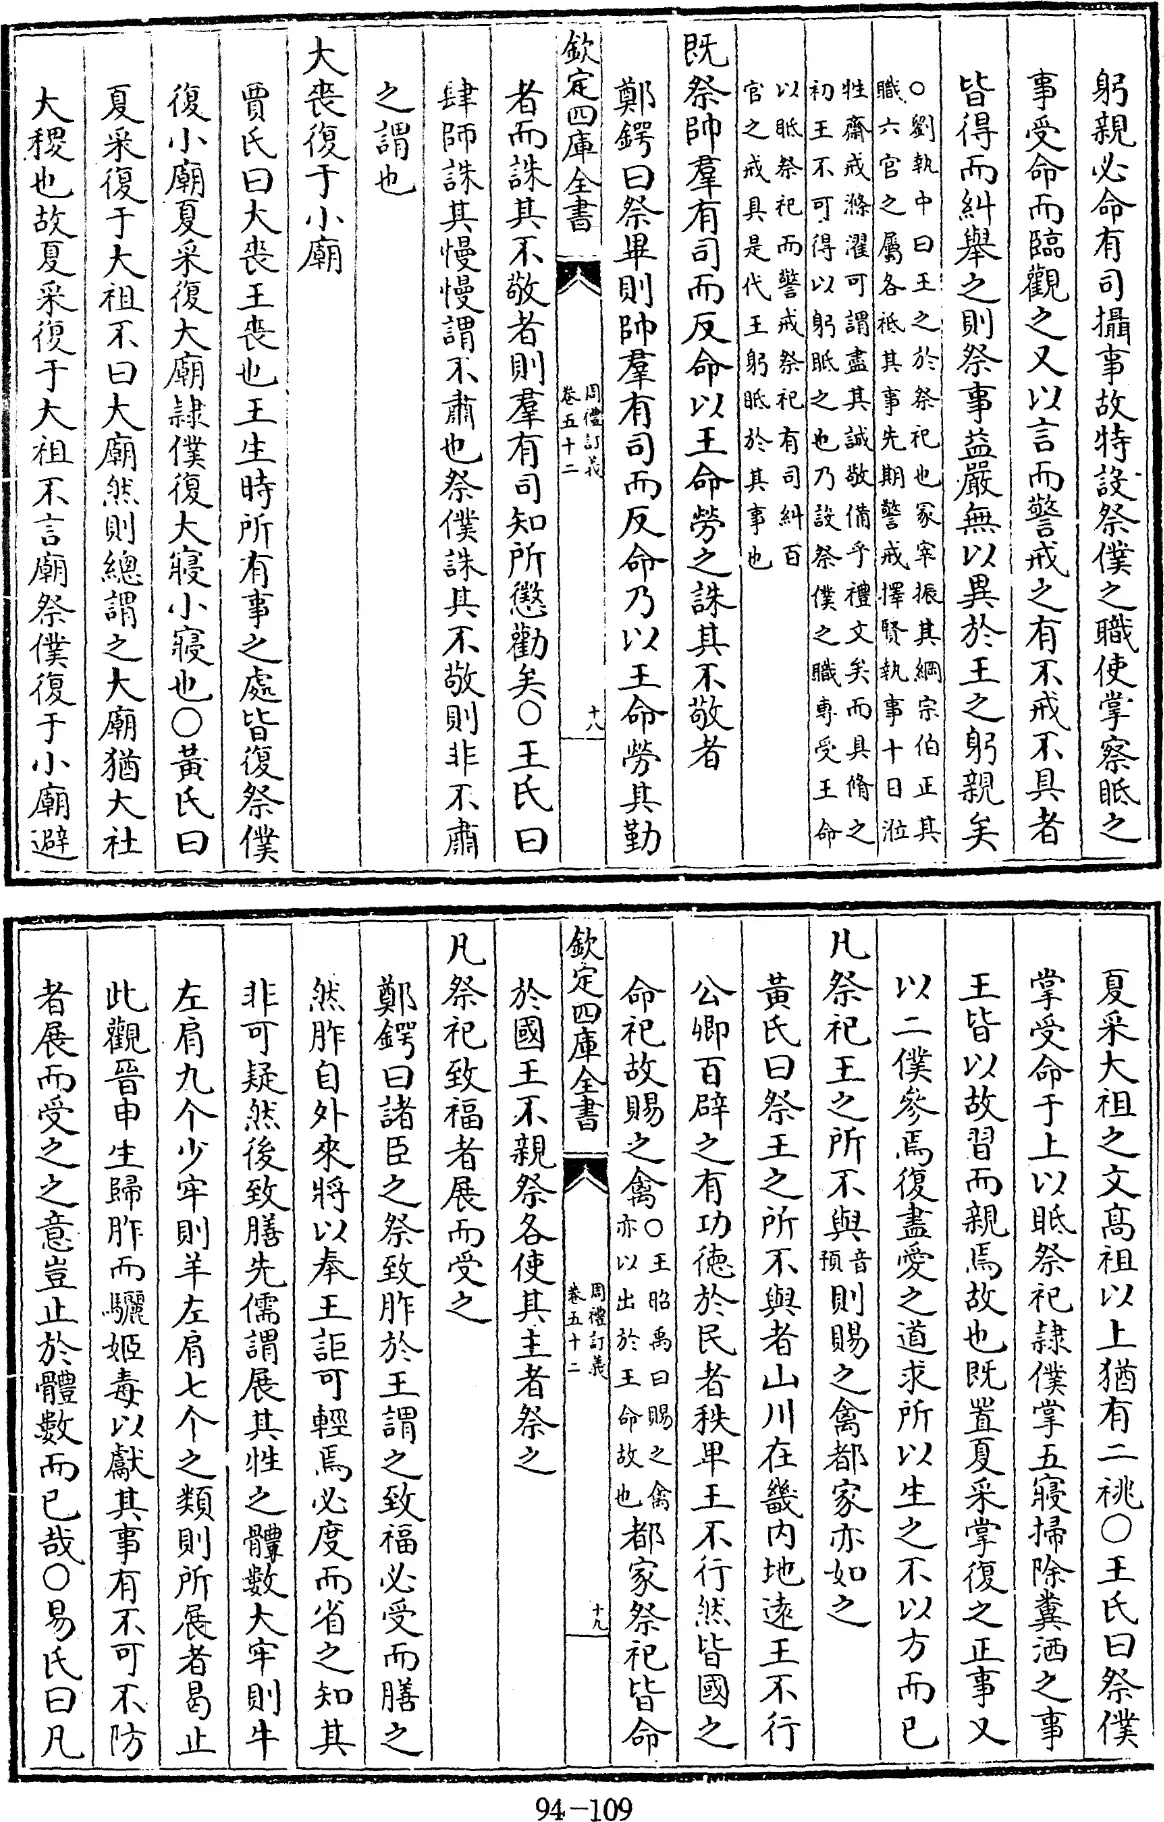 躬親必命有司攝事故特設祭僕之職使掌察眡之
事受命而臨觀之又以言而警戒之有不戒不具者
皆得而糾舉之則祭事益嚴無以異於王之躬親矣
○劉執中曰王之於祭祀也冢宰振其綱宗伯正其
職六官之屬各祗其事先期警戒擇賢執事十日涖
牲齋戒滌濯可謂盡其誠敬備乎禮文矣而具脩之
初王不可得以躬眡之也乃設祭僕之職専受王命
以眡祭祀而警戒祭祀有司糾百
官之戒具是代王躬眡於其事也
既祭帥羣有司而反命以王命勞之誅其不敬者
鄭鍔曰祭畢則帥羣有司而反命乃以王命勞其勤
欽定四庫全書
周禮訂義
卷五十二
十八
者而誅其不敬者則羣有司知所懲勸矣○王氏曰
肆師誅其慢慢謂不肅也祭僕誅其不敬則非不肅
之謂也
大喪復于小廟
賈氏曰大喪王喪也王生時所有事之處皆復祭僕
復小廟夏采復大廟隸僕復大寢小寢也○黃氏曰
夏采復于大祖不曰大廟然則總謂之大廟猶大社
大稷也故夏采復于大祖不言廟祭僕復于小廟避
夏采大祖之文髙祖以上猶有二祧○王氏曰祭僕
掌受命于上以眡祭祀隸僕掌五寢掃除糞洒之事
王皆以故習而親焉故也既置夏采掌復之正事又
以二僕參焉復盡愛之道求所以生之不以方而已
凡祭祀王之所不與音預則賜之禽都家亦如之
黃氏曰祭王之所不與者山川在畿内地逺王不行
公卿百辟之有功徳於民者秩卑王不行然皆國之
命祀故賜之禽○王昭禹曰賜之禽亦以出於王命故也都家祭祀皆命
欽定四庫全書
周禮訂義
卷五十二
十九
於國王不親祭各使其主者祭之
凡祭祀致福者展而受之
鄭鍔曰諸臣之祭致胙於王謂之致福必受而膳之
然胙自外來將以奉王詎可輕焉必度而省之知其
非可疑然後致膳先儒謂展其牲之體數大牢則牛
左肩九个少牢則羊左肩七个之類則所展者曷止
此觀晉申生歸胙而驪姬毒以獻其事有不可不防
者展而受之之意豈止於體數而已哉○易氏曰凡
94-109